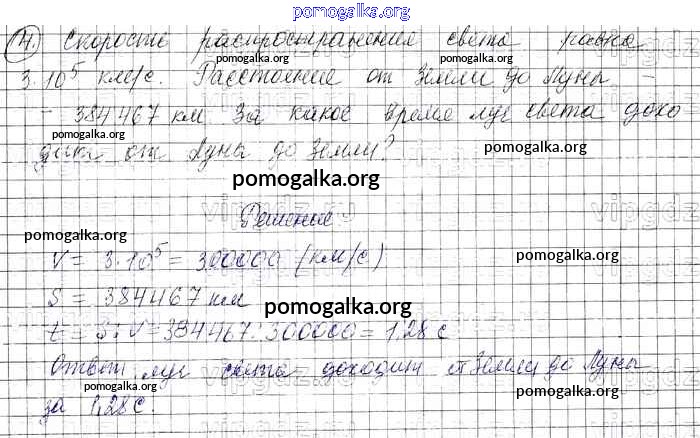 pomogalka.org
4. Скорость распространения света равна
3·10⁵ км/с. Расстояние от Земли до Луны –
pomogalka.org pomogalka.org
– 384 467 км. За какое время луч света дохо
pomogalka.org pomogalka.org
дит от Луны до Земли?
pomogalka.org
Решение
pomogalka.org
V = 3·10⁵ = 300000 (км/с)
pomogalka.org
S = 384467 км
pomogalka.org
t = S : V = 384467 : 300000 = 1,28 с
Ответ: луч света доходит от Земли до Луны
pomogalka.org pomogalka.org
за 1,28 с.